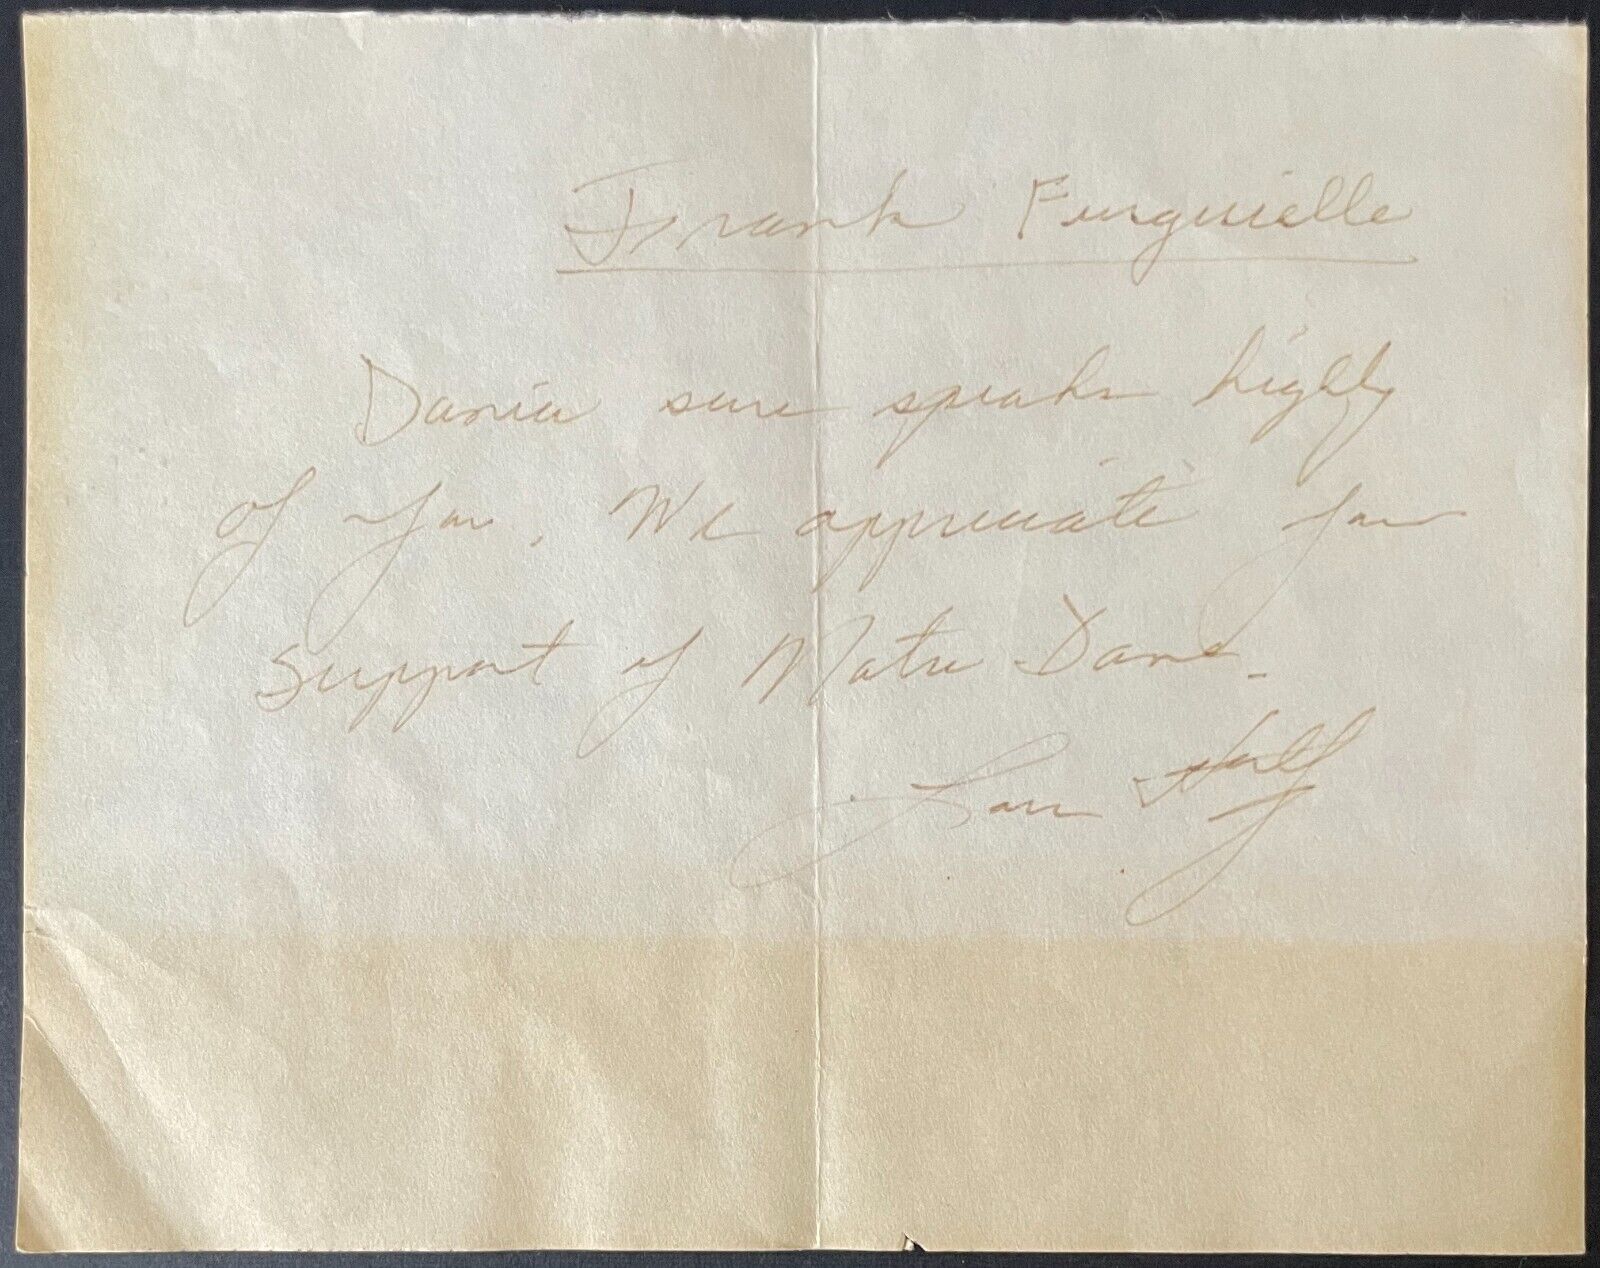 Frank Furguielle
Dania sure speaks highly
of you. We appreciate your
support of Notre Dame.
Lou Holtz